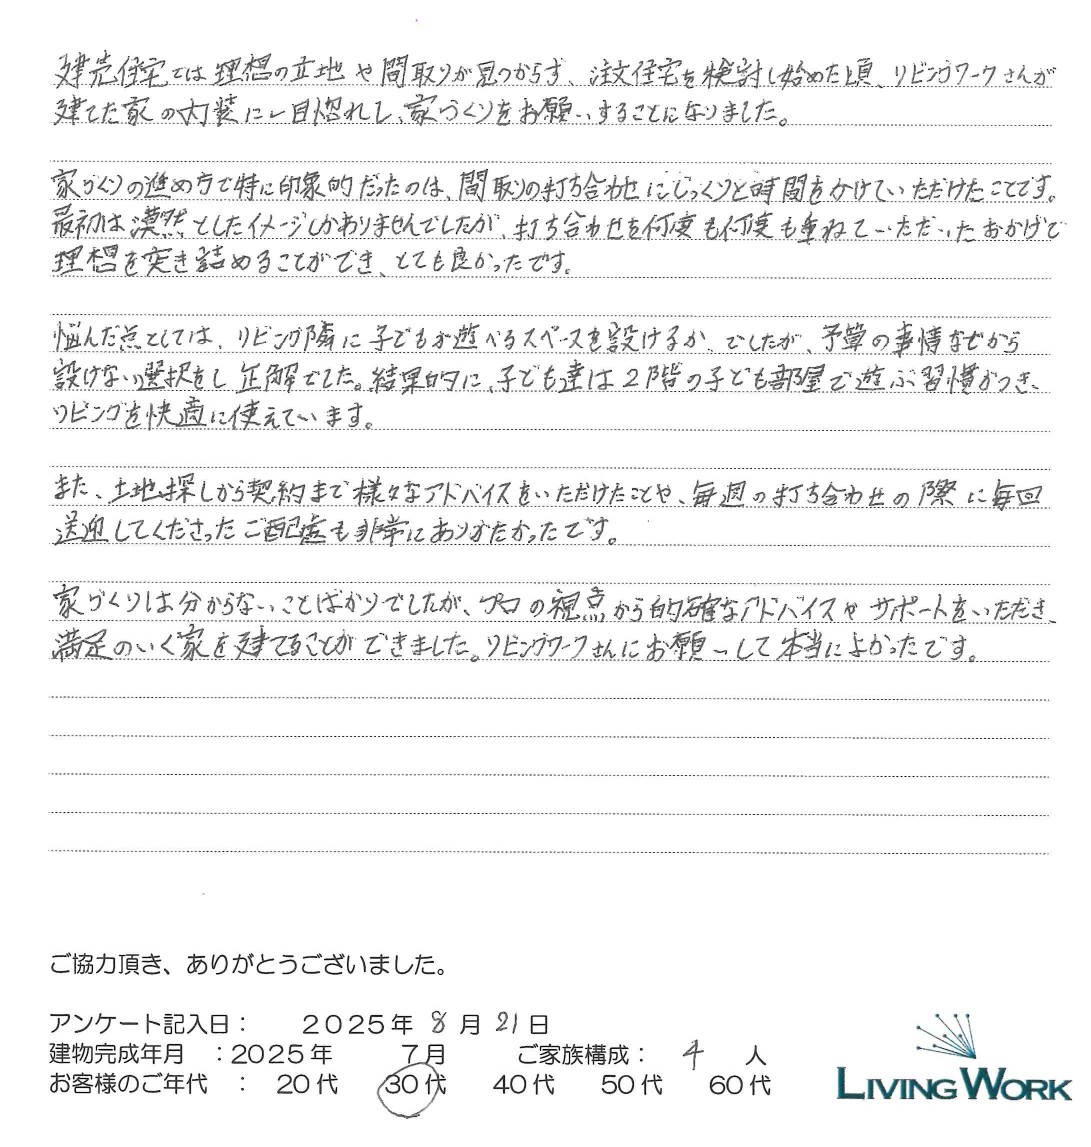 建売住宅では理想の立地や間取りが見つからず、注文住宅を検討し始めた頃、リビングワークさんが
建てた家の内装に一目惚れし、家づくりをお願いすることになりました。
家づくりの進め方で特に印象的だったのは、間取りの打ち合わせにじっくりと時間をかけていただけたことです。
最初は漠然としたイメージしかありませんでしたが、打ち合わせを何度も何度も重ねていただいたおかげで
理想を突き詰めることができ、とても良かったです。
悩んだ点としては、リビング隣に子どもが遊べるスペースを設けるか、でしたが、予算の事情などから
設けない選択をし正解でした。結果的に、子ども達は2階の子ども部屋で遊ぶ習慣がつき、
リビングを快適に使えています。
また、土地探しから契約まで様々なアドバイスをいただけたことや、毎週の打ち合わせの際に毎回
送迎してくださったご配慮も非常にありがたかったです。
家づくりは分からないことばかりでしたが、プロの視点から的確なアドバイスやサポートをいただき、
満足のいく家を建てることができました。リビングワークさんにお願いして本当によかったです。
ご協力頂き、ありがとうございました。
アンケート記入日： 2025年 8月 21日
建物完成年月 ：2025年 7月 ご家族構成： 4 人
お客様のご年代 ： 20代 30代 40代 50代 60代
LIVING WORK